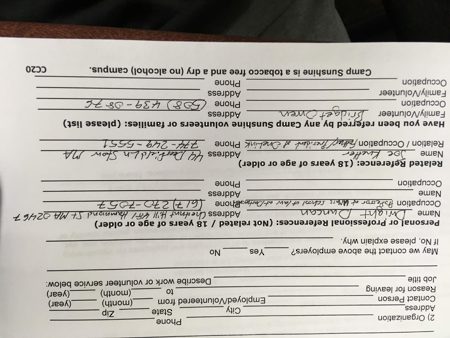 2) Organization Phone
Address City State Zip
Contact Person Employed/Volunteered from (month) (year)
Reason for leaving to (month) (year)
Job title Describe work or volunteer service below:
May we contact the above employers? Yes No
If No, please explain why.
Personal or Professional References: (Not related / 18 years of age or older)
Name Dwight Duncan Address Chestnut Hill MA 02467
Occupation Professor of Law Phone (617) 270-7057
Name Address
Occupation Phone
Related Reference: (18 years of age or older)
Name Joe Address Deerfield Ln Stow MA
Relation / Occupation Father/ President of Phone 774-249-5551
Have you been referred by any Camp Sunshine volunteers or families: (please list)
Family/Volunteer Bridget Address
Occupation Phone (508) 439-0876
Family/Volunteer Address
Occupation Phone
Camp Sunshine is a tobacco free and a dry (no alcohol) campus. CC20